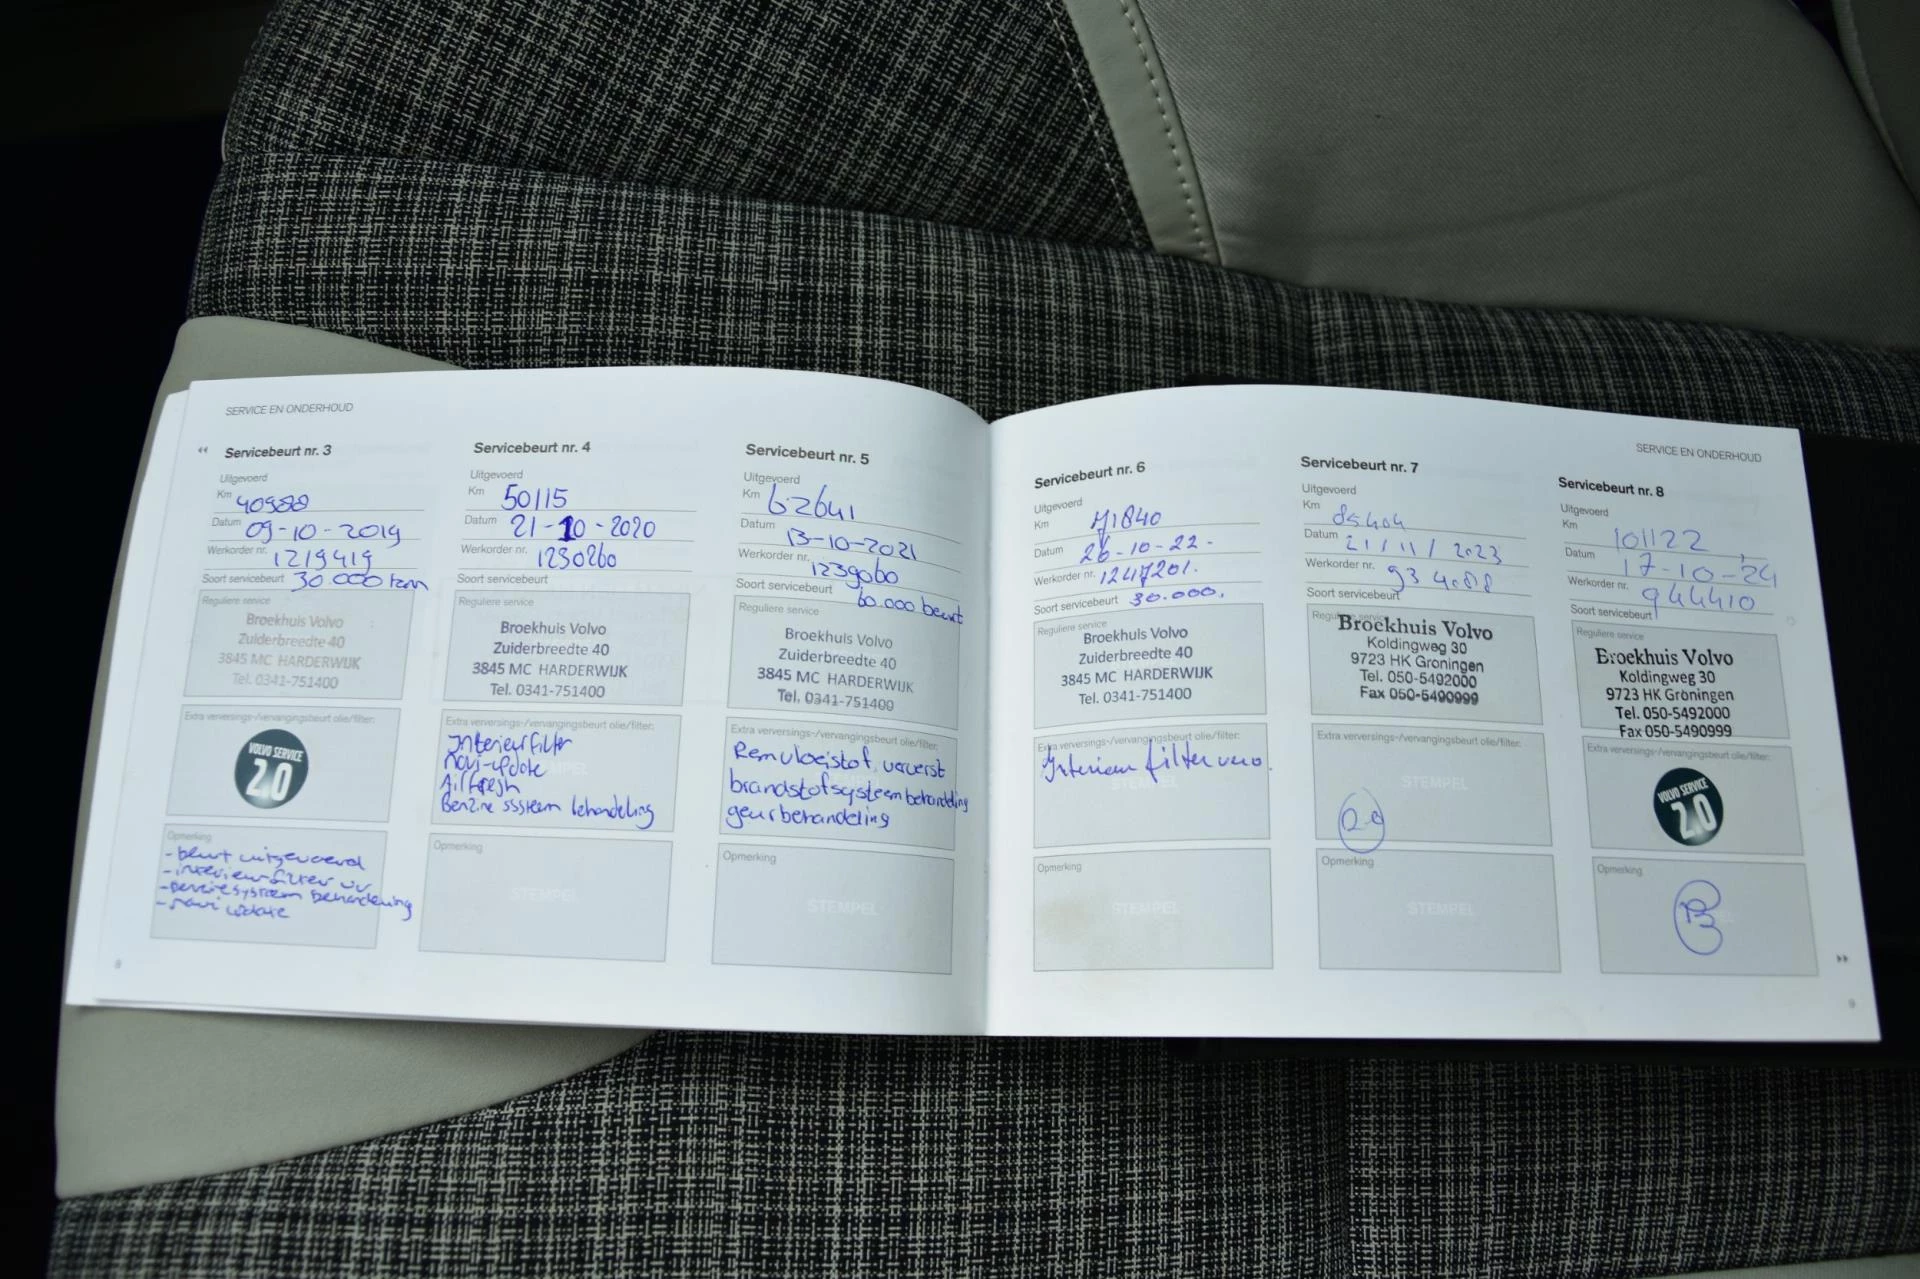 SERVICE EN ONDERHOUD
Servicebeurt nr. 3
Uitgevoerd
Km 40988
Datum 09-10-2019
Werkorder nr. 1219419
Soort servicebeurt 30.000 km
Reguliere service
Broekhuis Volvo
Zuiderbreedte 40
3845 MC HARDERWIJK
Tel. 0341-751400
Extra verversings-/vervangingsbeurt olie/filter:
VOLVO SERVICE
2.0
Opmerking
- beurt uitgevoerd
- interieurfilter vv
- benzinesysteem behandeling
- navi update
8
Servicebeurt nr. 4
Uitgevoerd
Km 50115
Datum 21-10-2020
Werkorder nr. 1230260
Soort servicebeurt
Reguliere service
Broekhuis Volvo
Zuiderbreedte 40
3845 MC HARDERWIJK
Tel. 0341-751400
Extra verversings-/vervangingsbeurt olie/filter:
Interieurfilter
navi-update
Airfresh
Benzine sssteem behandeling
Opmerking
STEMPEL
Servicebeurt nr. 5
Uitgevoerd
Km 62641
Datum 13-10-2021
Werkorder nr. 1239060
Soort servicebeurt 60.000 beurt
Reguliere service
Broekhuis Volvo
Zuiderbreedte 40
3845 MC HARDERWIJK
Tel. 0341-751400
Extra verversings-/vervangingsbeurt olie/filter:
Remvloeistof ververst
brandstofsysteembehandeling
geurbehandeling
Opmerking
STEMPEL
SERVICE EN ONDERHOUD
Servicebeurt nr. 6
Uitgevoerd
Km 71840
Datum 26-10-22.
Werkorder nr. 1247201.
Soort servicebeurt 30.000.
Reguliere service
Broekhuis Volvo
Zuiderbreedte 40
3845 MC HARDERWIJK
Tel. 0341-751400
Extra verversings-/vervangingsbeurt olie/filter:
Interieur filter verv.
Opmerking
STEMPEL
Servicebeurt nr. 7
Uitgevoerd
Km 85404
Datum 21/11/2023
Werkorder nr. 934088
Soort servicebeurt
Reguliere service
Broekhuis Volvo
Koldingweg 30
9723 HK Groningen
Tel. 050-5492000
Fax 050-5490999
Extra verversings-/vervangingsbeurt olie/filter:
STEMPEL
2.0
Opmerking
STEMPEL
Servicebeurt nr. 8
Uitgevoerd
Km 101122
Datum 17-10-24
Werkorder nr. 944410
Soort servicebeurt
Reguliere service
Broekhuis Volvo
Koldingweg 30
9723 HK Groningen
Tel. 050-5492000
Fax 050-5490999
Extra verversings-/vervangingsbeurt olie/filter:
VOLVO SERVICE
2.0
Opmerking
9